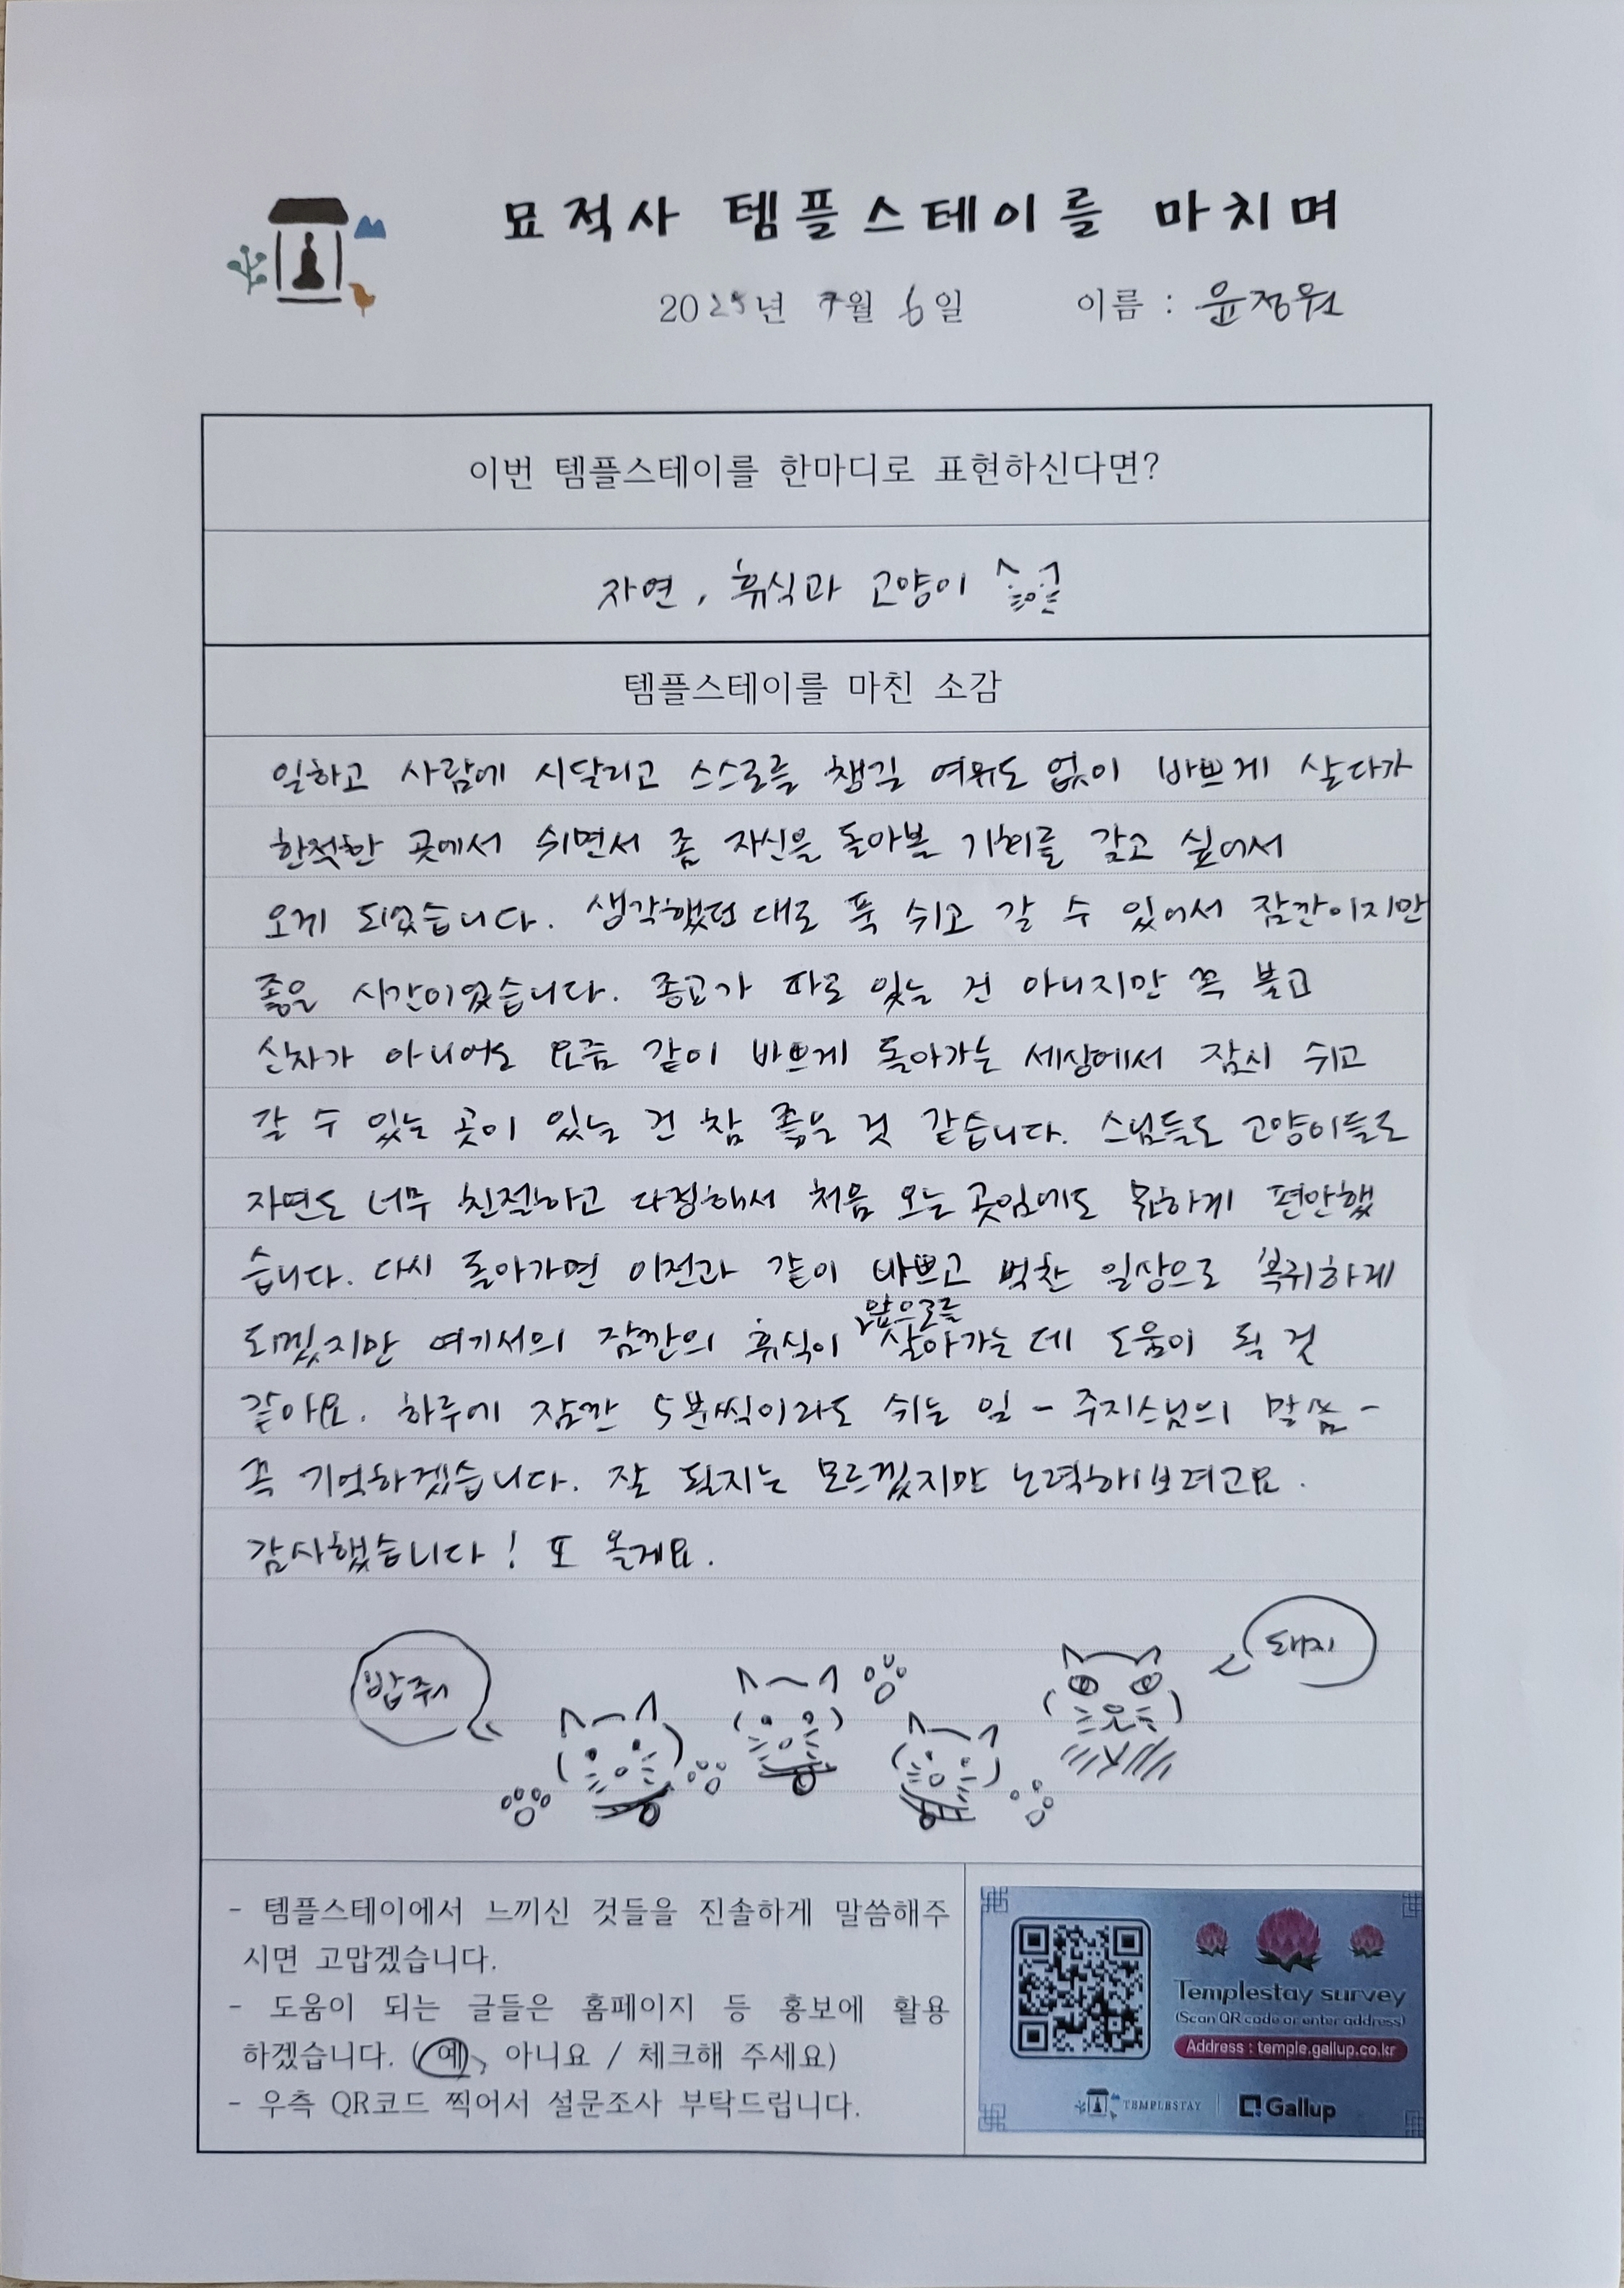 묘적사 템플스테이를 마치며
2025년 7월 6일 이름 : 윤정원
이번 템플스테이를 한마디로 표현하신다면?
자연, 휴식과 고양이
템플스테이를 마친 소감
일하고 사람에 시달리고 스스로를 챙길 여유도 없이 바쁘게 살다가
한적한 곳에서 쉬면서 좀 자신을 돌아볼 기회를 갖고 싶어서
오게 되었습니다. 생각했던 대로 푹 쉬고 갈 수 있어서 잠깐이지만
좋은 시간이었습니다. 종교가 따로 있는 건 아니지만 꼭 불교
신자가 아니어도 요즘 같이 바쁘게 돌아가는 세상에서 잠시 쉬고
갈 수 있는 곳이 있는 건 참 좋은 것 같습니다. 스님들도 고양이들도
자연도 너무 친절하고 다정해서 처음 오는 곳임에도 묘하게 편안했
습니다. 다시 돌아가면 이전과 같이 바쁘고 벅찬 일상으로 복귀하게
앞으로를
되겠지만 여기서의 잠깐의 휴식이 살아가는 데 도움이 될 것
같아요. 하루에 잠깐 5분씩이라도 쉬는 일 - 주지스님의 말씀 -
꼭 기억하겠습니다. 잘 될지는 모르겠지만 노력해보려고요.
감사했습니다! 또 올게요.
밥줘
돼지
- 템플스테이에서 느끼신 것들을 진솔하게 말씀해주
시면 고맙겠습니다.
- 도움이 되는 글들은 홈페이지 등 홍보에 활용
하겠습니다. (예, 아니요 / 체크해 주세요)
- 우측 QR코드 찍어서 설문조사 부탁드립니다.
Templestay survey
(Scan QR code or enter address)
Address : temple.gallup.co.kr
TEMPLESTAY
Gallup